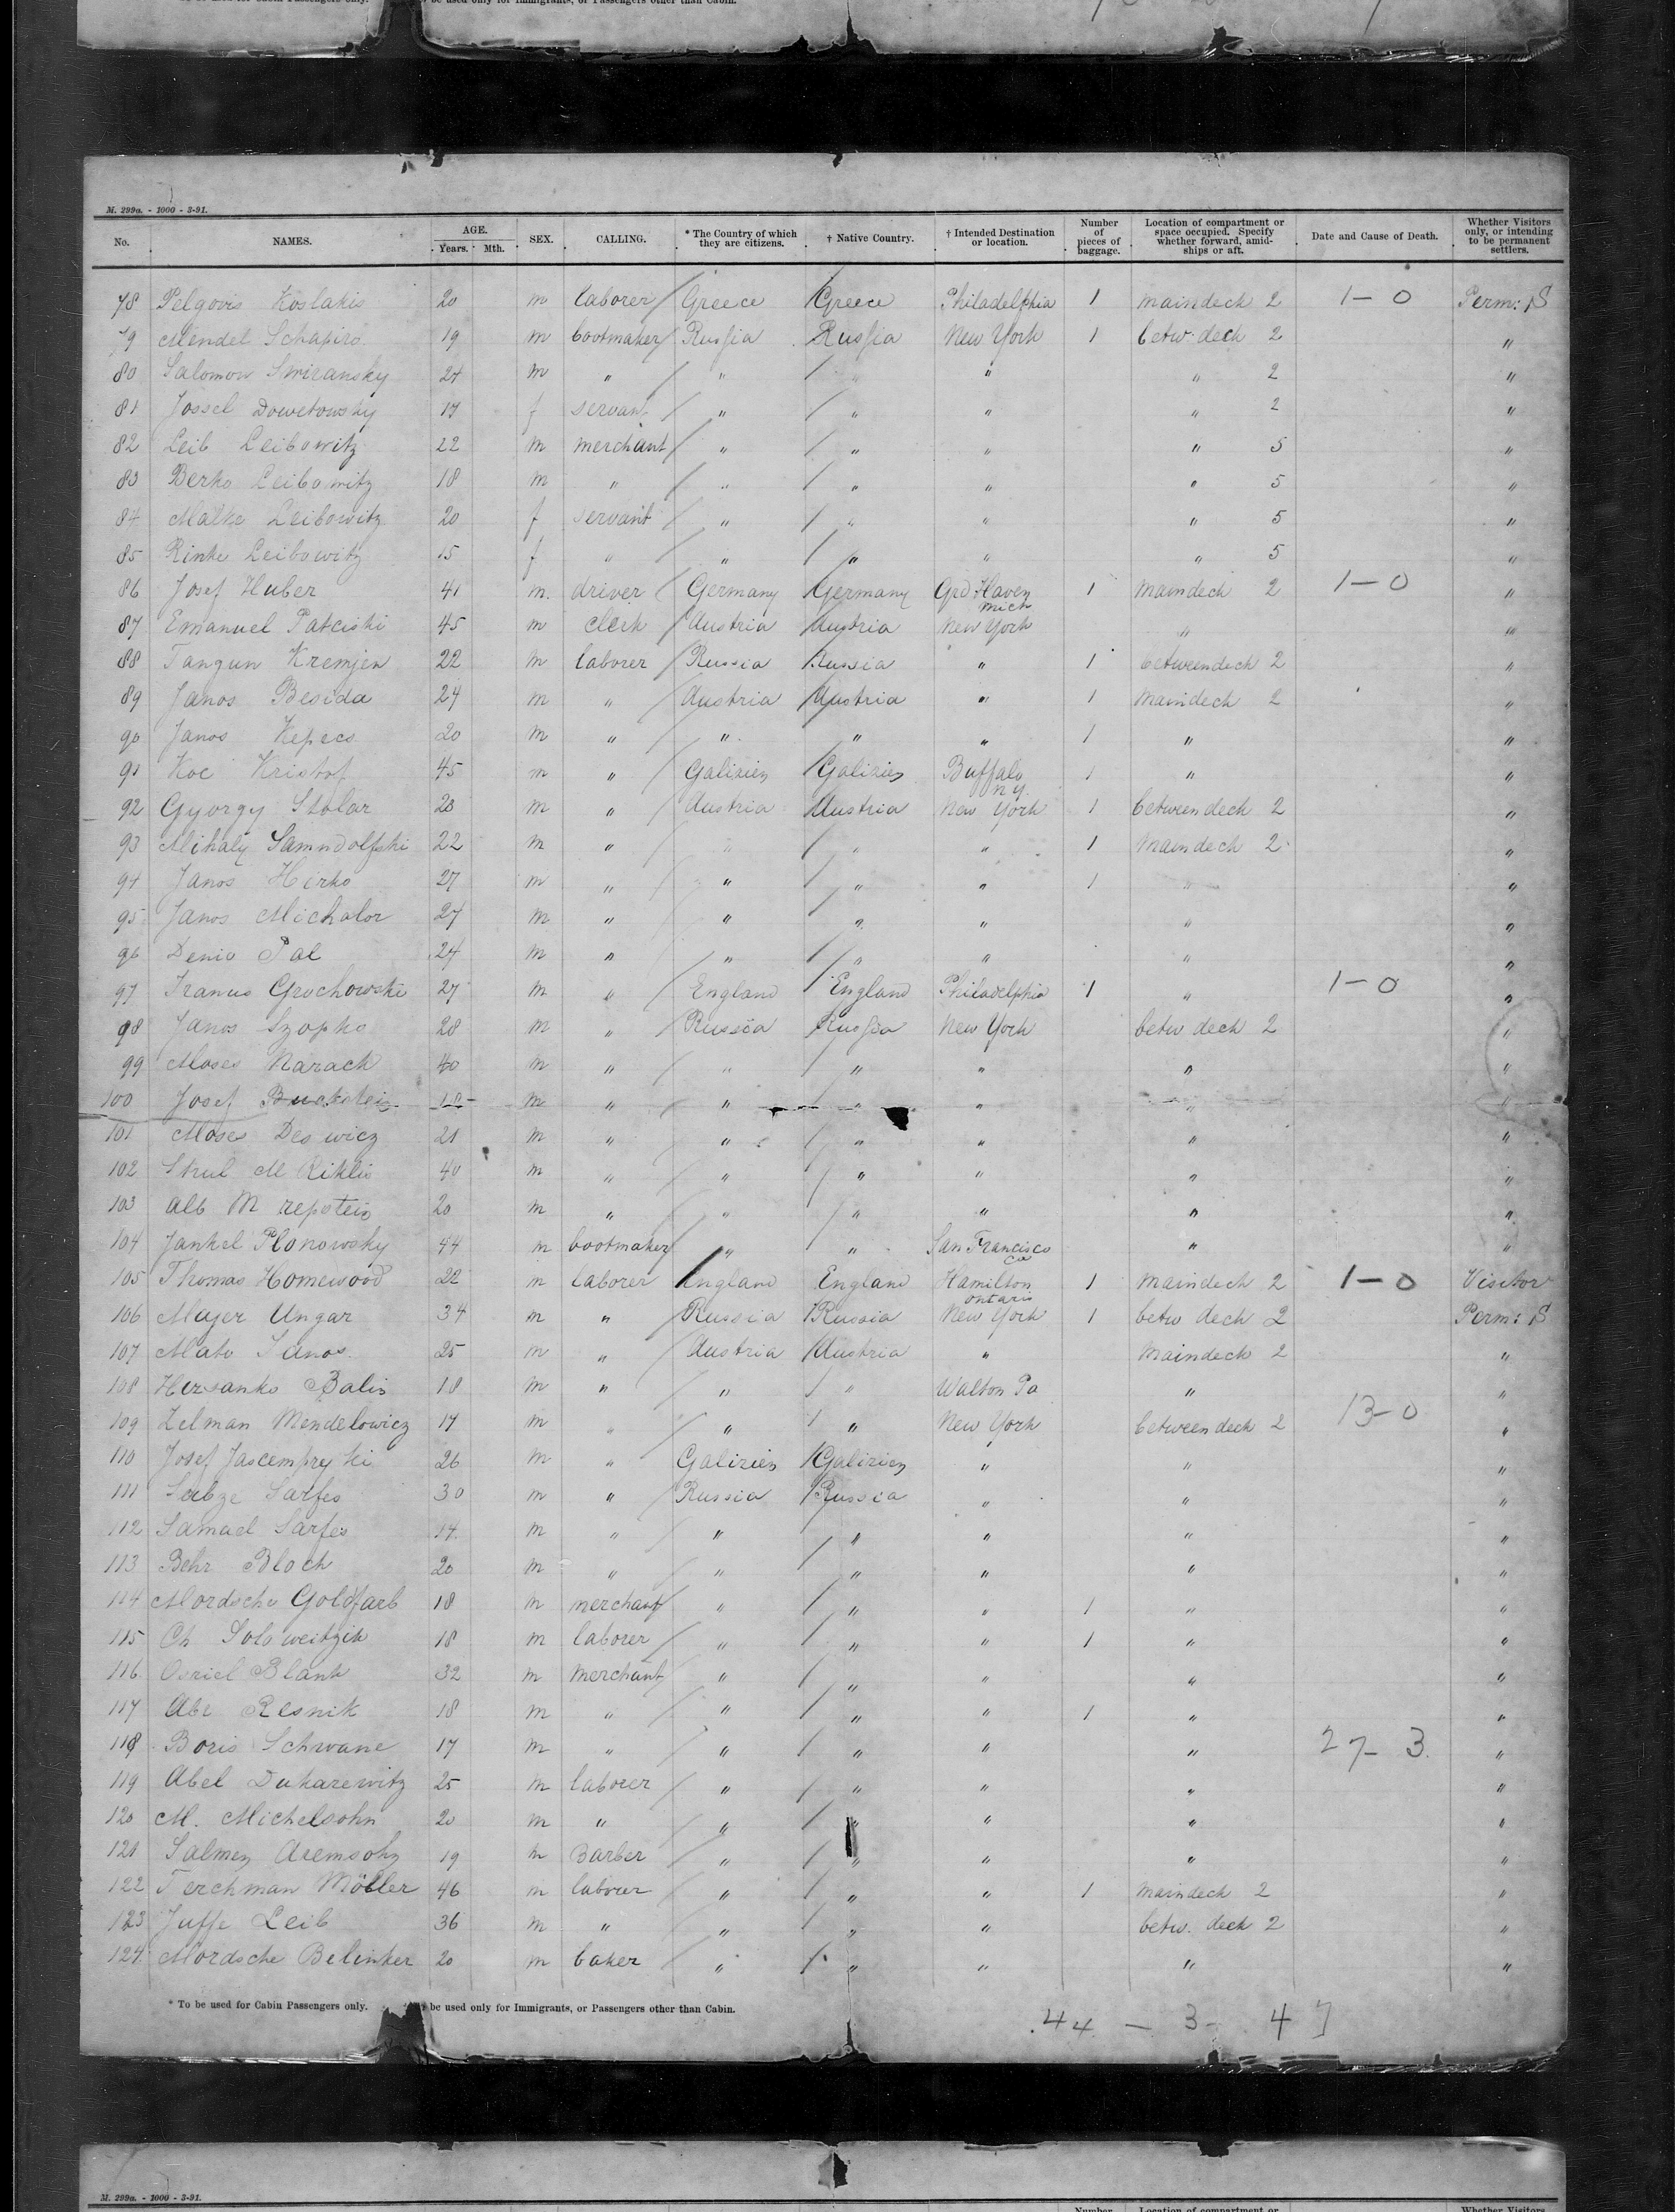 be used only for Immigrants, or Passengers other than Cabin.
M. 299a. - 1000 - 3-91.
No. NAMES. AGE. Years. Mth. SEX. CALLING. * The Country of which they are citizens. † Native Country. † Intended Destination or location. Number of pieces of baggage. Location of compartment or space occupied. Specify whether forward, amidships or aft. Date and Cause of Death. Whether Visitors only, or intending to be permanent settlers.
78 Pelgovis Koslakis 20 m laborer Greece Greece Philadelphia 1 maindeck 2 1-0 Perm: S
79 Mendel Schapiro 19 m bootmaker Russia Russia New York 1 betw. deck 2 "
80 Salomon Swiransky 24 m " " " " " 2 "
81 Jossel Dowetowsky 17 f servant " " " " 2 "
82 Leib Leibowitz 22 m merchant " " " " 5 "
83 Berko Leibowitz 18 m " " " " " 5 "
84 Malke Leibowitz 20 f servant " " " " 5 "
85 Rinke Leibowitz 15 f " " " " " 5 "
86 Josef Huber 41 m. driver Germany Germany Grd Haven Mich 1 maindeck 2 1-0 "
87 Emanuel Patciski 45 m clerk Austria Austria New York " "
88 Tangun Kremjen 22 m laborer Russia Russia " 1 betweendeck 2 "
89 Janos Besida 24 m " Austria Austria " 1 maindeck 2 "
90 Janos Kepecs 20 m " " " " 1 " "
91 Koc Kristof 45 m " Galizien Galizien Buffalo N.Y. 1 " "
92 Gyorgy Stolar 20 m " Austria Austria New York 1 betweendeck 2 "
93 Mihaly Samndolfski 22 m " " " " 1 maindeck 2 "
94 Janos Hirko 27 m " " " " 1 " "
95 Janos Michalor 27 m " " " " " "
96 Denio Pal 24 m " " " " " "
97 Franus Grochowski 27 m " England England Philadelphia 1 " 1-0 "
98 Janos Szopko 28 m " Russia Russia New York betw deck 2 "
99 Moses Narach 40 m " " " " " "
100 Josef m " " " " " "
101 Moses Deswicz 21 m " " " " " "
102 M Riklis 40 m " " " " " "
103 Alb M repstein 20 m " " " " " "
104 Jankel Plonowsky 44 m bootmaker " " San Francisco Ca " "
105 Thomas Homewood 22 m laborer England England Hamilton Ontario 1 maindeck 2 1-0 Visitor
106 Majer Ungar 34 m " Russia Russia New York 1 betw deck 2 Perm: S
107 Mato Janos 25 m " Austria Austria " maindeck 2 "
108 Hersanko Balin 18 m " " " Walton Pa " "
109 Zelman Mendelowicz 17 m " " " New York betweendeck 2 13-0 "
110 Josef 26 m " Galizien Galizien " " "
111 Labze Sarfes 30 m " Russia Russia " " "
112 Samael Sarfes 14 m " " " " " "
113 Behr Bloch 20 m " " " " " "
114 Mordsche Goldfarb 18 m merchant " " " 1 " "
115 Ch Soloweitzik 18 m laborer " " " 1 " "
116 Osriel Blank 32 m merchant " " " " "
117 Abe Resnik 18 m " " " " 1 " "
118 Boris Schwane 17 m " " " " " 27-3. "
119 Abel Dukarewitz 25 m laborer " " " " "
120 M. Michelsohn 20 m " " " " " "
121 Salmen Aremsohn 19 m Barber " " " " "
122 Terchman Möller 46 m laborer " " " 1 maindeck 2 "
123 Juffe Leib 36 m " " " " betw. deck 2 "
124 Mordsche Belinker 20 m baker " " " " "
* To be used for Cabin Passengers only. be used only for Immigrants, or Passengers other than Cabin.
44 - 3 - 47
M. 299a. - 1000 - 3-91.
Number Location of compartment or Whether Visitors